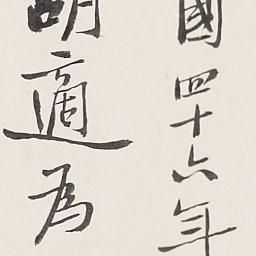 國四十六年
胡適為